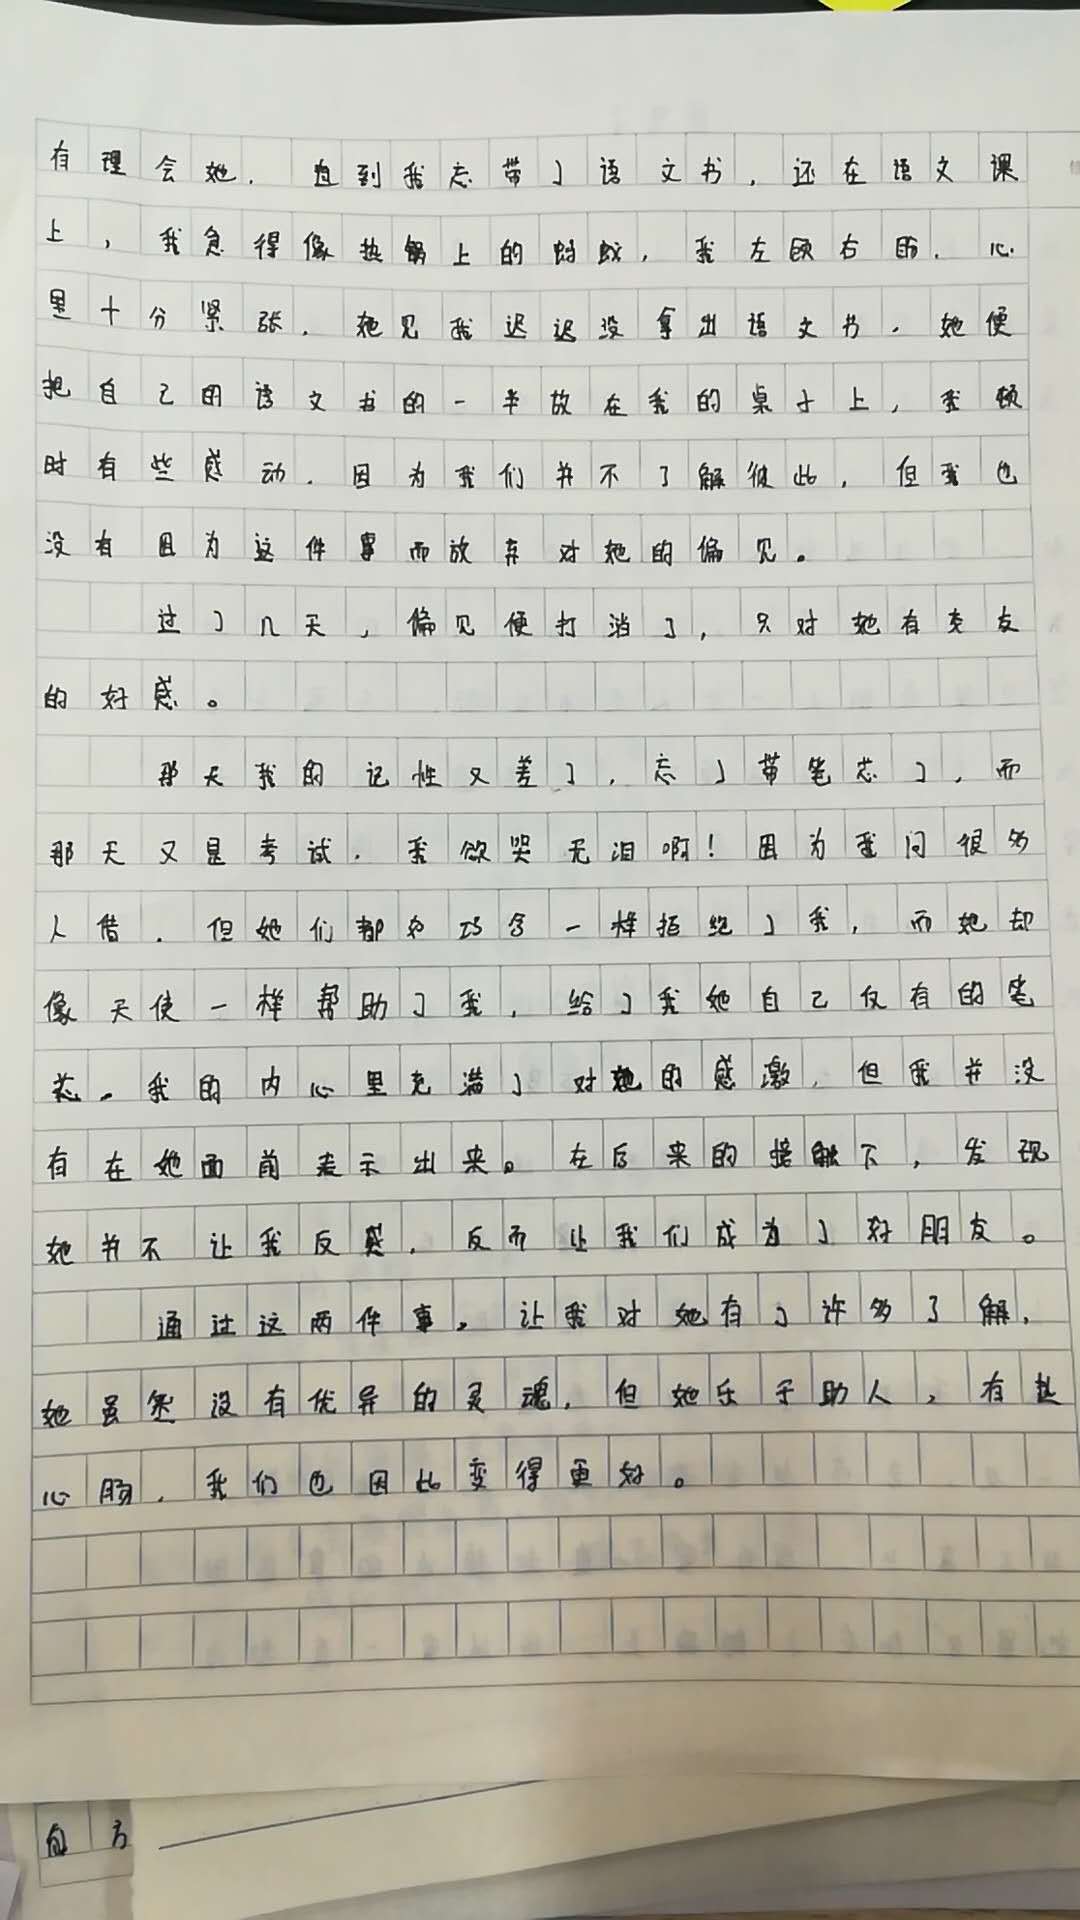 有理会她，直到我忘带了语文书，还在语文课
上，我急得像热锅上的蚂蚁，我左顾右盼，心
里十分紧张，她见我迟迟没拿出语文书，她便
把自己的语文书的一半放在我的桌子上，我顿
时有些感动，因为我们并不了解彼此，但我也
没有因为这件事而放弃对她的偏见。
过了几天，偏见便打消了，只对她有交友
的好感。
那天我的记性又差了，忘了带笔芯了，而
那天又是考试，我欲哭无泪啊！因为我问很多
人借，但她们都如巧合一样拒绝了我，而她却
像天使一样帮助了我，给了我她自己仅有的笔
芯。我的内心里充满了对她的感激，但我并没
有在她面前表示出来。在后来的接触下，发现
她并不让我反感，反而让我们成为了好朋友。
通过这两件事，让我对她有了许多了解，
她虽然没有优异的灵魂，但她乐于助人，有热
心肠，我们也因此变得更好。
方